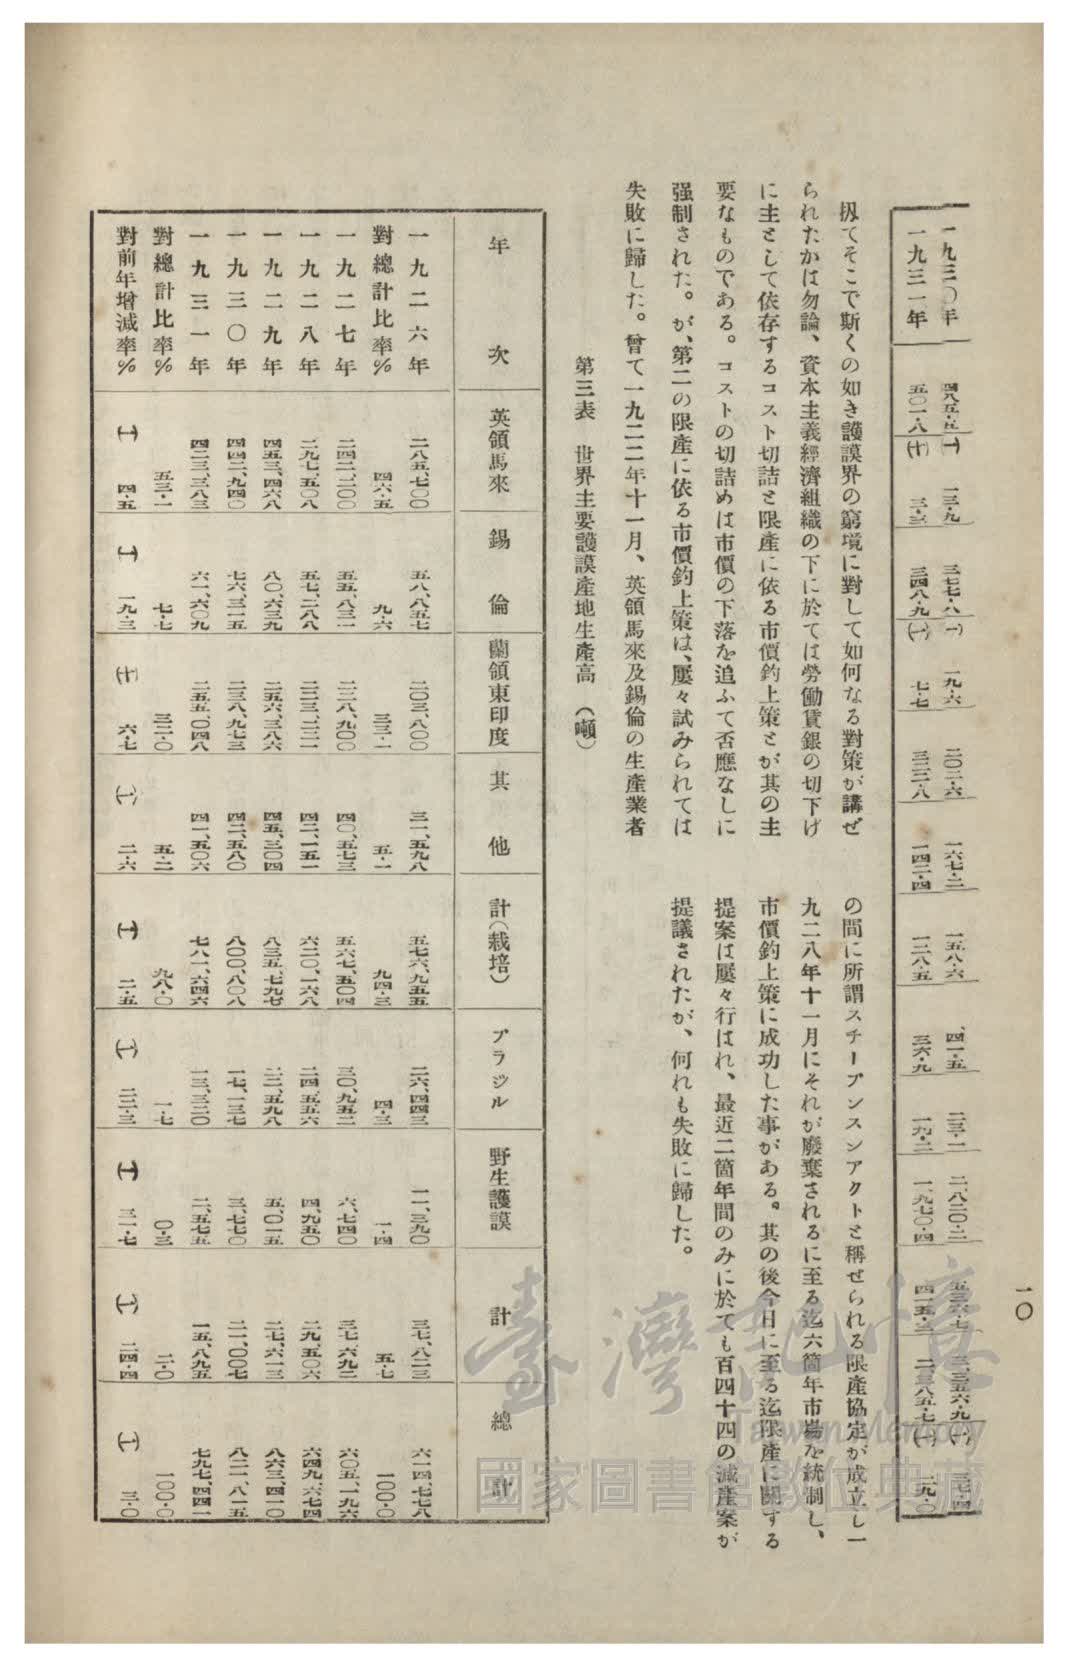 一〇
一九三〇年 四八五・五 (一) 一三・九 三七七・八 (一) 一九・六 二〇二・六 一六七・二 一五八・六 四一・五 二三・一 二、八二〇・二 五三六・七 三、三五六・九 (一) 三七・四
一九三一年 五〇一・八 (十) 三・三 三四八・九 (一) 七・七 一四二・四 一二八・五 三六・九 一九・二 一、九七〇・四 四一五・三 二、三八五・七 (一) 二九・〇
扨てそこで斯くの如き護謨界の窮境に對して如何なる對策が講ぜ
られたかは勿論、資本主義經濟組織の下に於ては勞働賃銀の切下げ
に主として依存するコスト切詰と限產に依る市價釣上策とが其の主
要なものである。コストの切詰めは市價の下落を追ふて否應なしに
强制された。が、第二の限產に依る市價釣上策は、屢々試みられては
失敗に歸した。曾て一九二二年十一月、英領馬來及錫倫の生產業者
の間に所謂スチーブンスンアクトと稱せられる限產協定が成立し一
九二八年十一月にそれが廢棄されるに至る迄六箇年市場を統制し、
市價釣上策に成功した事がある。其の後今日に至る迄限產に關する
提案は屢々行はれ、最近二箇年間のみに於ても百四十四の減產案が
提議されたが、何れも失敗に歸した。
第三表 世界主要護謨產地生產高 (噸)
年次 英領馬來 錫倫 蘭領東印度 其他 計(栽培) ブラジル 野生護謨 計 總計
一九二六年 二八五、七〇〇 五八、八五七 二〇三、八〇〇 三一、五九八 五七六、九五五 二六、四四三 一一、三九〇 三七、八二三 六一四、七七八
對總計比率% 四六・五 九・六 三三・一 五・一 九四・三 四・三 一・四 五・七 一〇〇・〇
一九二七年 二四二、二〇〇 五五、八三一 二二八、九〇〇 四〇、五七三 五六七、五〇四 三〇、九五二 六、七四〇 三七、六九二 六〇五、一九六
一九二八年 二九七、五〇八 五七、二八八 二二三、二二一 四二、一五一 六二〇、一六八 二四、五五六 四、九五〇 二九、五〇六 六四九、六七四
一九二九年 四五三、四六八 八〇、六三九 二五六、三八六 四五、三〇四 八三五、七九七 二二、五九八 五、〇一五 二七、六一三 八六三、四一〇
一九三〇年 四四二、九四〇 七六、三一五 二三八、九七三 四二、五八〇 八〇〇、八〇八 一七、二三七 三、七七〇 二一、〇〇七 八二一、八一五
一九三一年 四二三、三八三 六一、六〇九 二五五、〇四八 四一、五〇六 七八一、六四六 一三、三二〇 二、五七五 一五、八九五 七九七、四四一
對總計比率% 五三・一 七・七 三二・〇 五・二 九八・〇 一・七 〇・三 二・〇 一〇〇・〇
對前年增減率% (一) 四・五 (一) 一九・三 (十) 六・七 (一) 二・六 (一) 二・五 (一) 二二・三 (一) 三一・七 (一) 二四・四 (一) 三・〇
臺灣記憶
Taiwan Memory
國家圖書館數位典藏